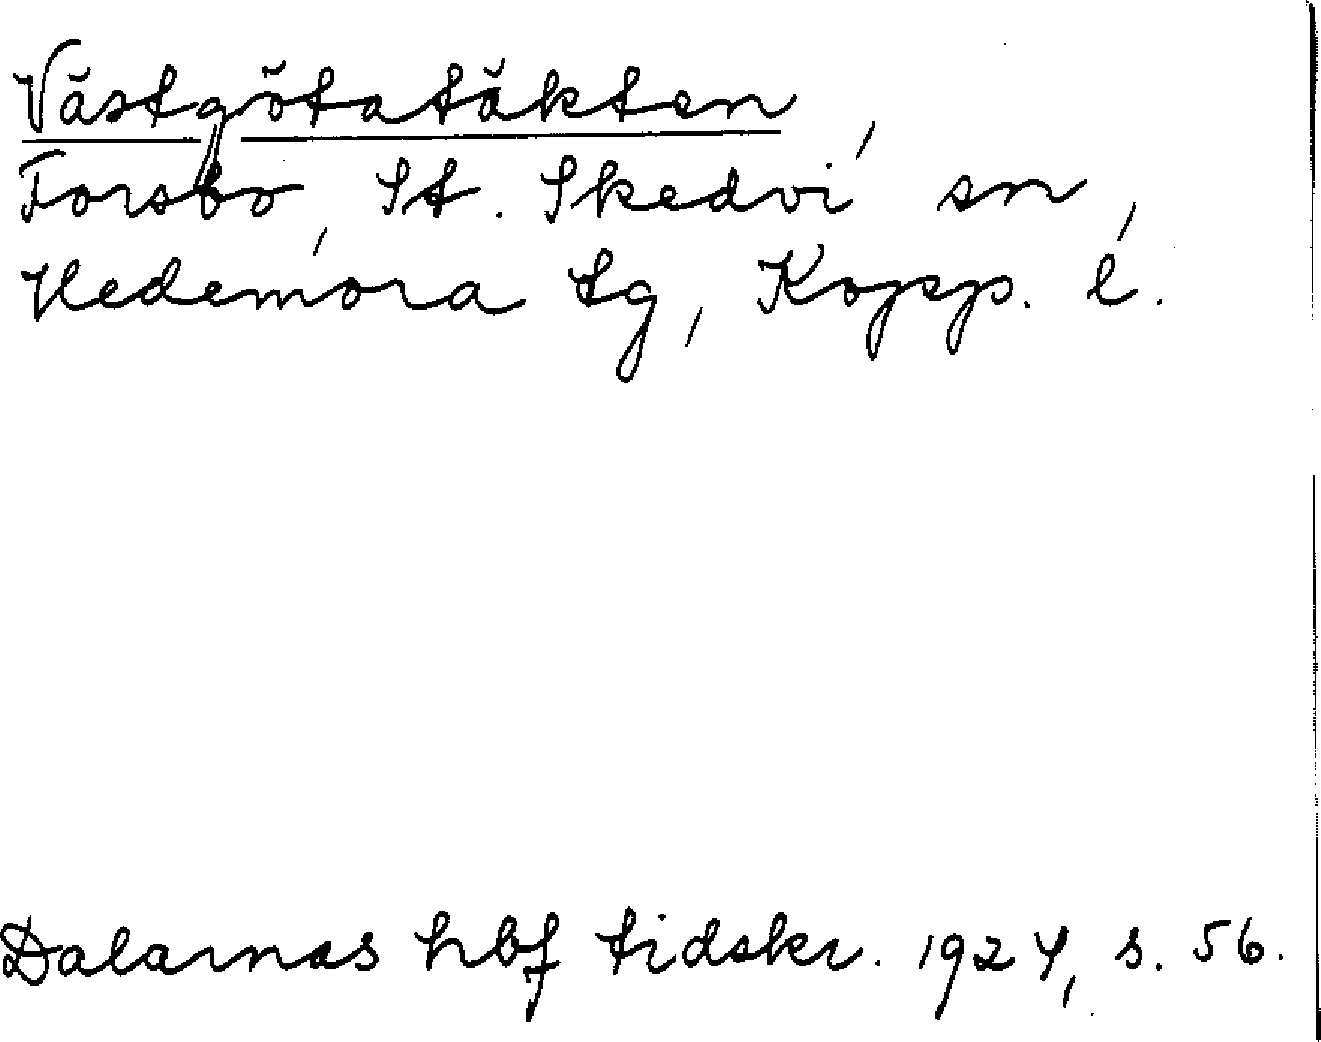 Västgötatäkten,
Forsbo, St. Skedvi sn,
Hedemora tg, Kopp. l.
Dalarnas hbf tidskr. 1924, s. 56.